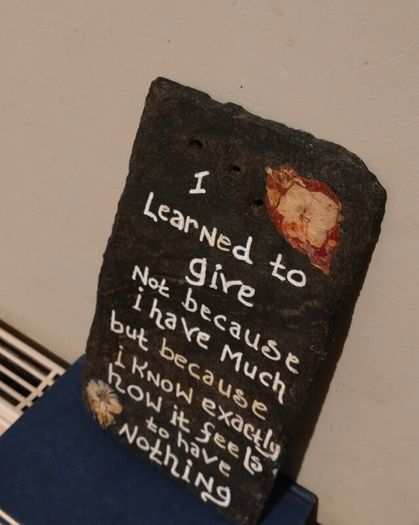 I
Learned to
give
Not because
i have Much
but because
i Know exactly
how it feels
to have
Nothing